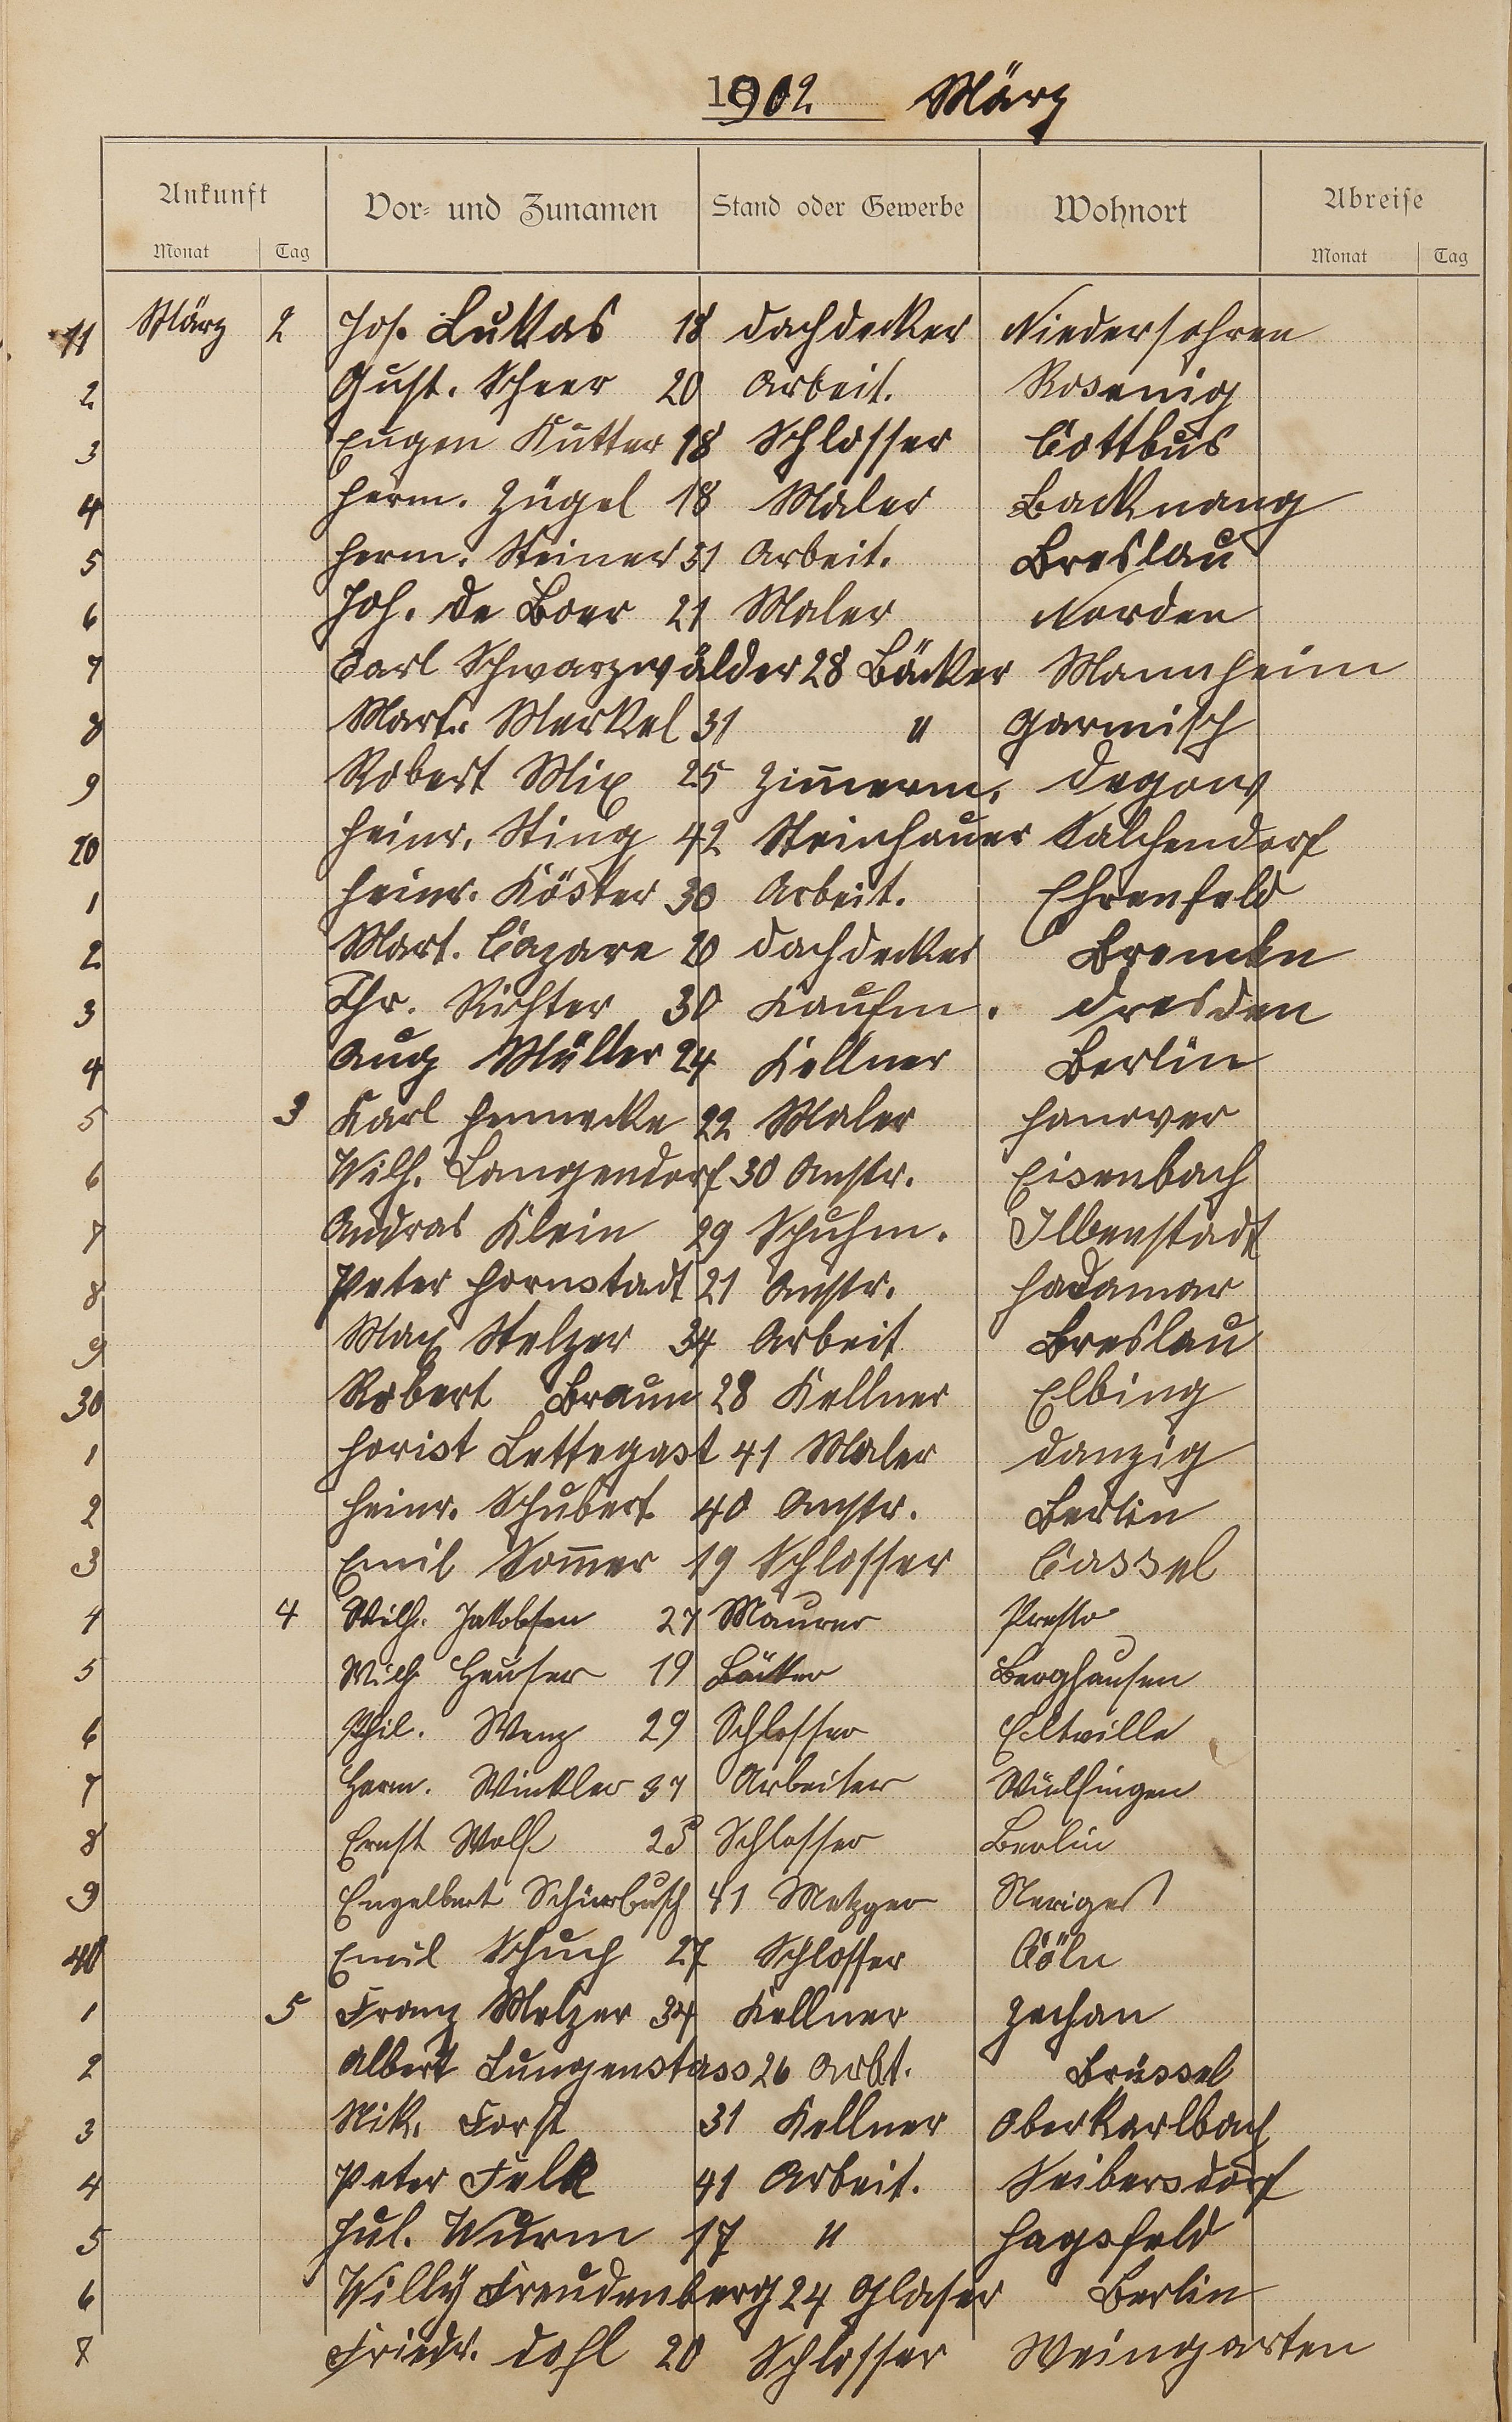 1902 März
Ankunft Vor- und Zunamen Stand oder Gewerbe Wohnort Abreise
Monat Tag Monat Tag
11 März 2 Jos. Lukas 18 Dachdecker Niedersohren
2 Gust. Scheer 20 Arbeit. Rosenig
3 Eugen Kutter 18 Schlosser Cottbus
4 Herm. Zügel 18 Maler Backnang
5 Herm. Steiner 31 Arbeit. Breslau
6 Joh. de Boer 21 Maler Norden
7 Carl Schwarzwälder 28 Bäcker Mannheim
8 Mart. Merkel 31 " Garmisch
9 Robert Mix 25 Zim̄erm. Degow
20 Heinr. Sting 42 Steinhauer Kalchendorf
1 Heinr. Köster 30 Arbeit. Ehrenfeld
2 Mart. Cazare 20 Dachdecker
3 Chr. Richter 30 Kaufm. Dresden
4 Aug Müller 24 Kellner Berlin
5 3 Karl Hennecke 22 Maler Hanover
6 Wilh. Langendorf 30 Anstr. Eisenbach
7 Andras Klein 29 Schuhm. Ilbenstadt
8 Peter Hornstadt 21 Anstr. Hadamar
9 Max Stelzer 34 Arbeit Breslau
30 Robert Braun 28 Kellner Elbing
1 Horist Lettegast 41 Maler Danzig
2 Heinr. Schubert 40 Anstr. Berlin
3 Emil Som̄er 19 Schlosser Cassel
4 4 Wilh. Jakobsen 27 Maurer Presto
5 Wilh Heuser 19 Bäcker Berghausen
6 Phil. Wenz 29 Schlosser Eltville
7 Herm. Winkler 37 Arbeiter Wülfingen
8 Ernst Wolf 25 Schlosser Berlin
9 Engelbert 41 Metzger Neviges
40 Emil Schuch 27 Schlosser Cöln
1 5 Franz Melzer 34 Kellner Zechan
2 Albert Lungenstass 26 Arbt. Brüssel
3 Nik. Forst 31 Kellner Oberkarlbach
4 Peter Falk 41 Arbeit. Seibersdorf
5 Jul. Wurm 17 " Hagsfeld
6 Willy Freudenberg 24 Glaser Berlin
7 Friedr. Dohl 20 Schlosser Weingarten